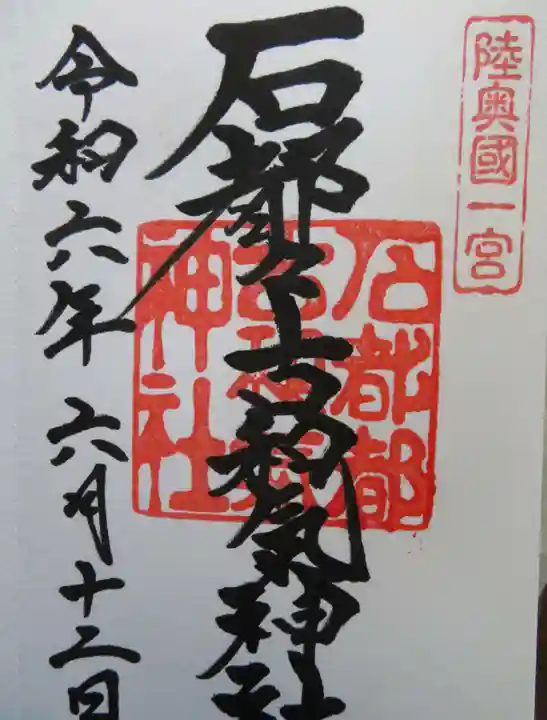 陸奥國一宮
石都々古和氣神社
石都都古和氣神社
令和六年六月十二日